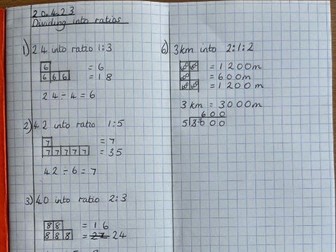 20.4.23
Dividing into ratios
1) 24 into ratio 1:3
6 = 6
6 6 6 = 18
24 ÷ 4 = 6
2) 42 into ratio 1:5
7 = 7
7 7 7 7 7 = 35
42 ÷ 6 = 7
3) 40 into ratio 2:3
8 8 = 16
8 8 8 = 24
6) 3km into 2:1:2
= 1200m
= 600m
= 1200m
3km = 3000m
600
5